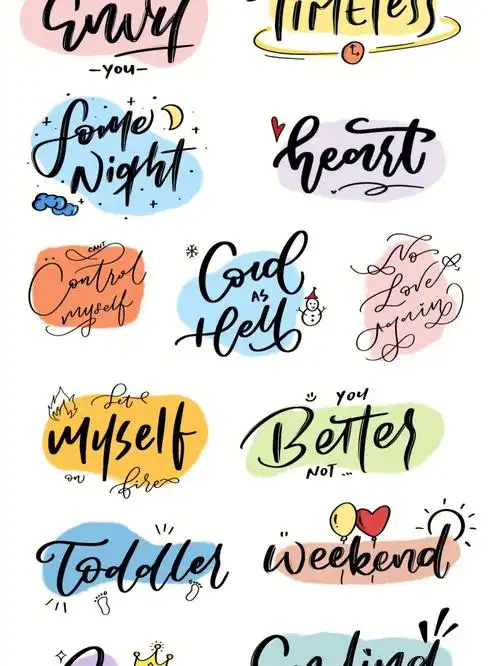 Envy
-YOU-
TIMELESS
Some
Night
heart
CANT
Control
myself
Cold
AS
Hell
No
Love
Again
Let
myself
on fire
YOU
Better
NOT ...
Toddler
Weekend